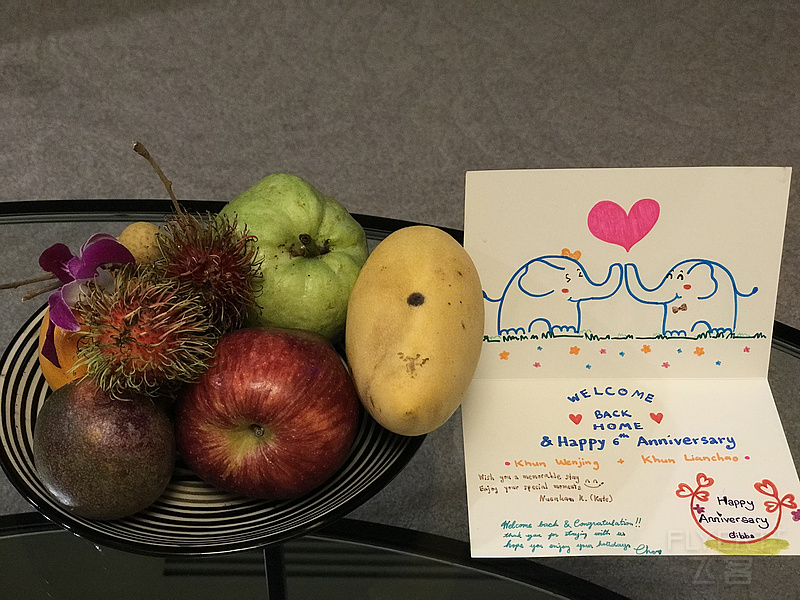 WELCOME
BACK
HOME
& Happy 6th Anniversary
Khun Wenjing + Khun Lianchao
Wish you a memorable stay
Enjoy your special moments
Nuanham K. (Kate)
Welcome back & Congratulation!!
thank you for staying with us
hope you enjoy your holidays
Happy
Anniversary
Gibbs